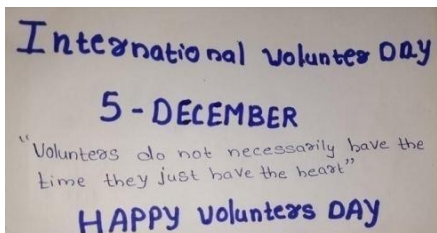 International Volunter DAY
5 - DECEMBER
"Volunteas do not necessarily have the
time they just have the heart"
HAPPY Volunters DAY